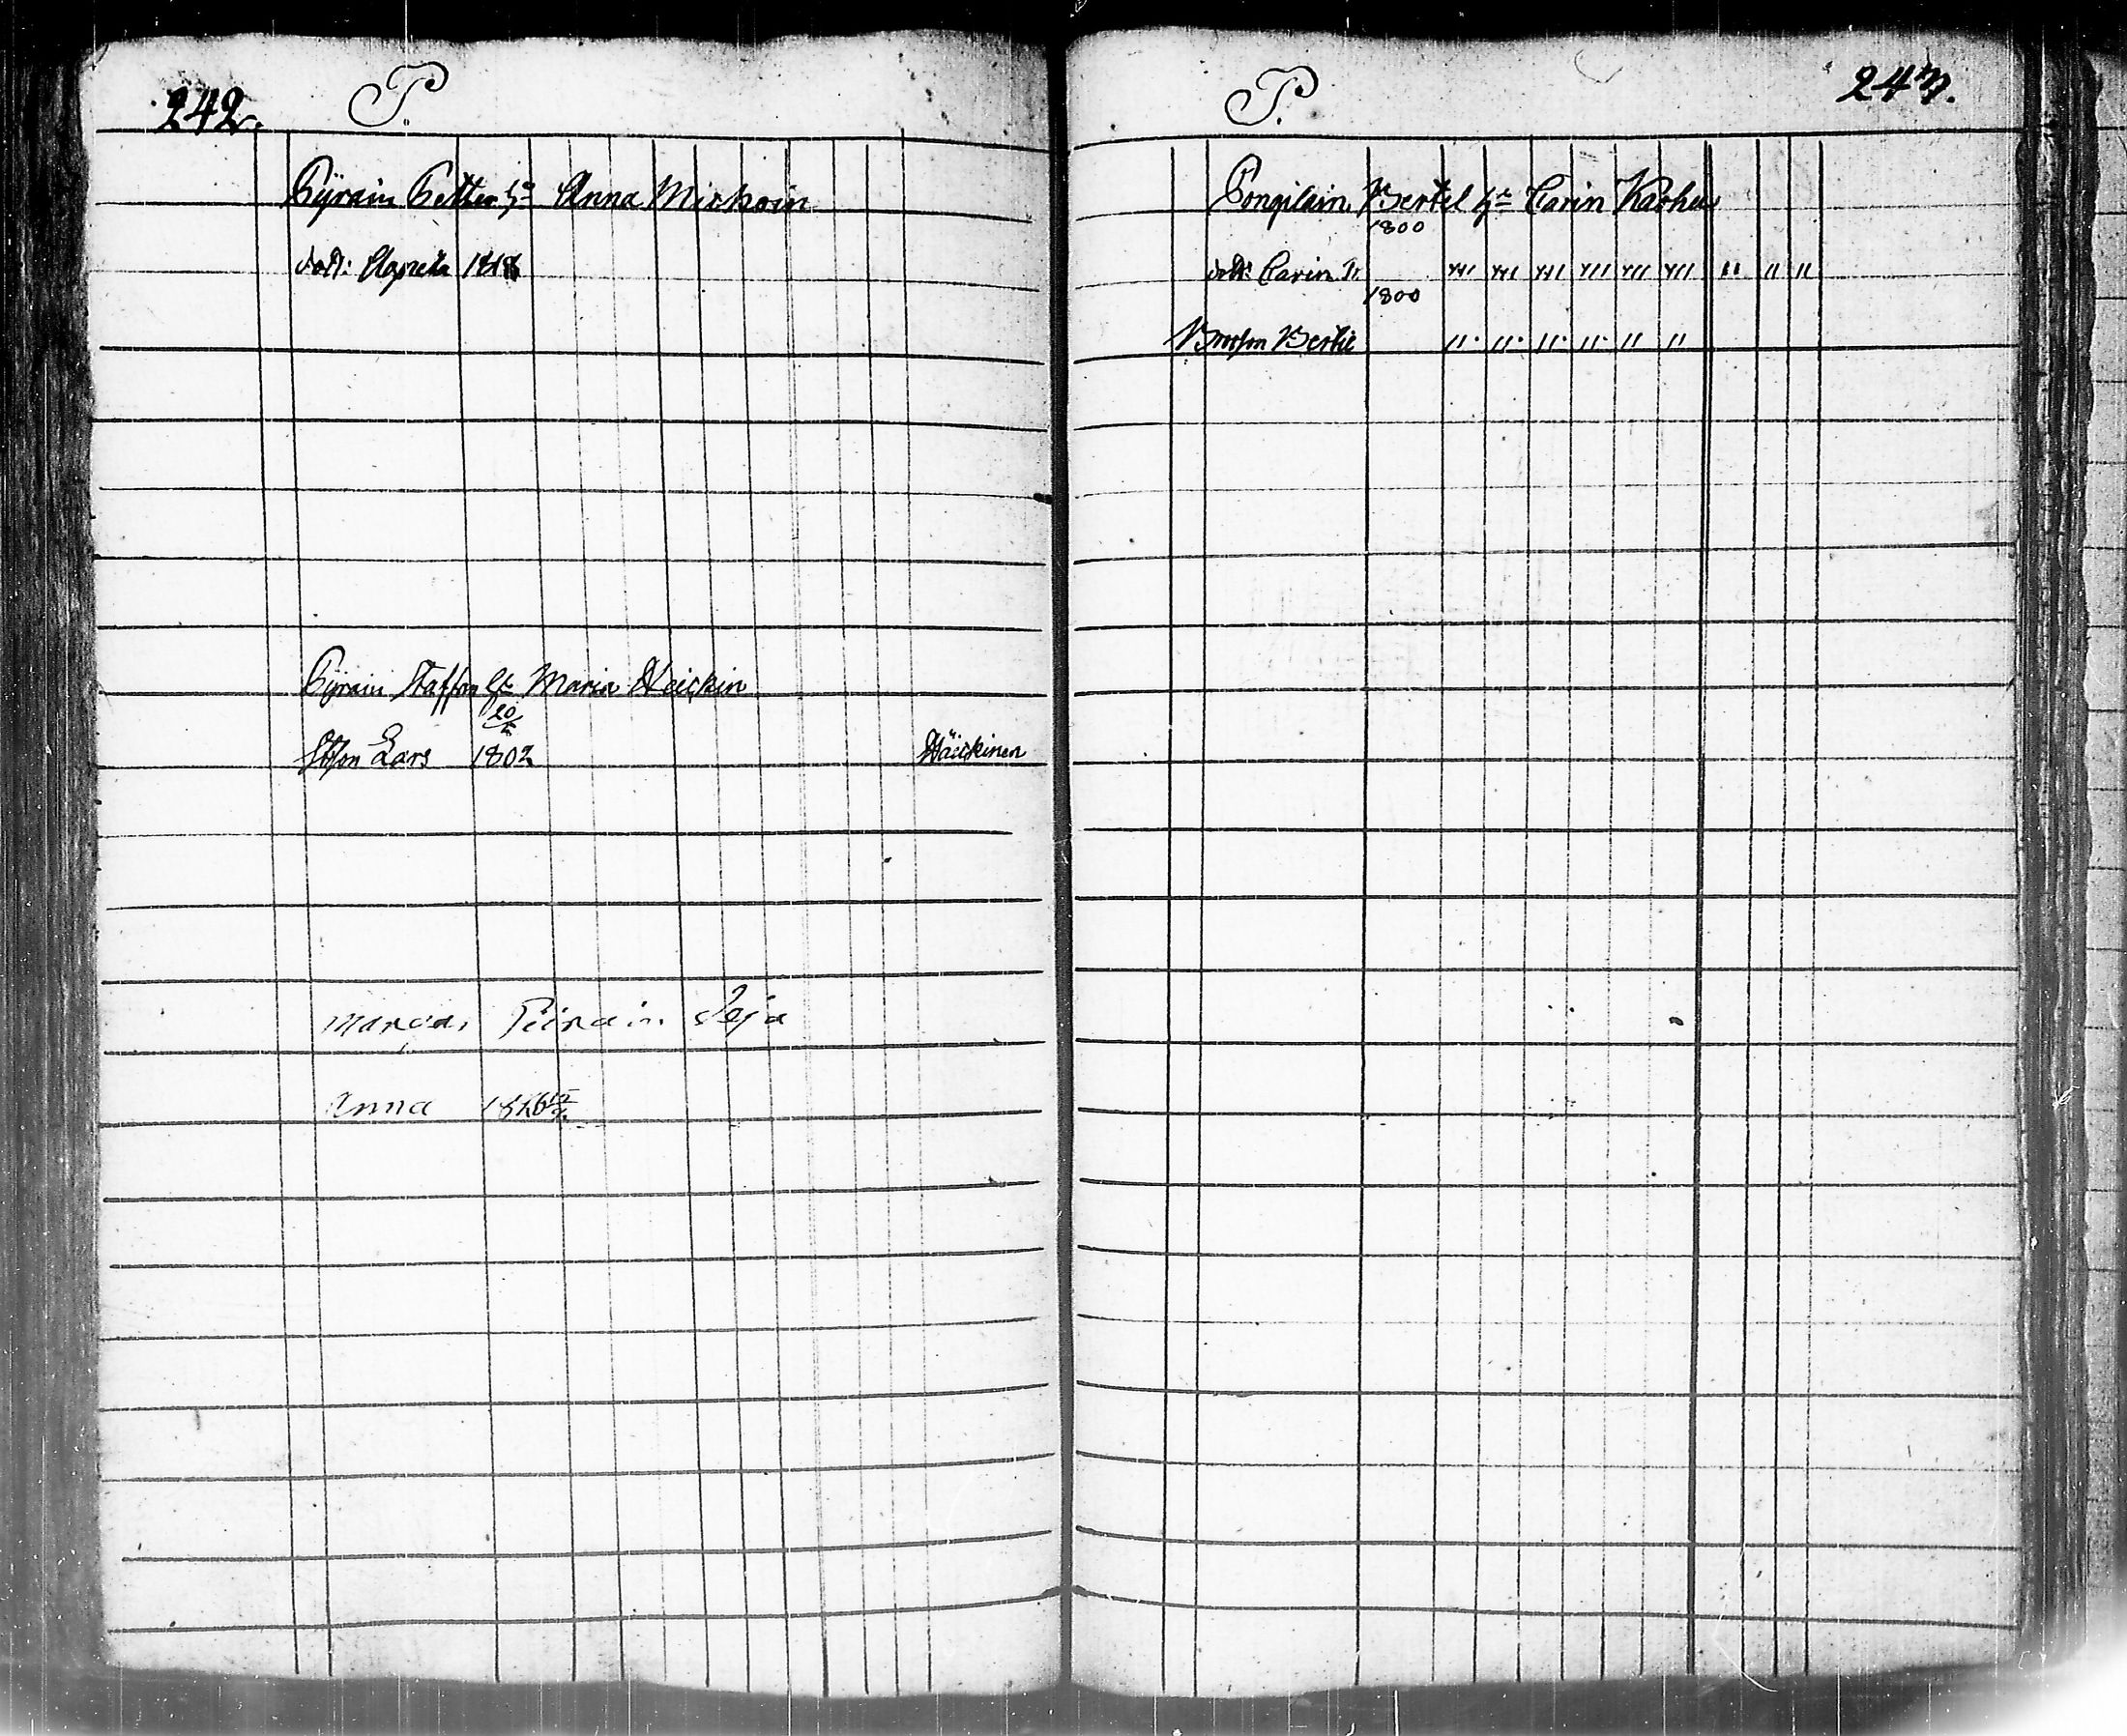 242.
P.
Pyrain Petter h:o Anna Mickoin
dott: Agneta 1818
Pyrain Staffan h:o Maria Heickin
20/
Lars 1802
Häickinen
Piirain Leja
Anna
P.
243.
Pongilain Bertel h:o Carin Karhu
1800
dott: Carin
1800
Brorson Bertil